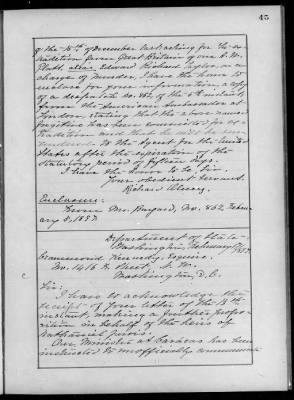 45
of the 15th of December last asking for the ex-
tradition from Great Britain of one A. W.
Platt, alias Edward Richard Taylor, on a
charge of murder, I have the honor to
enclose for your information, a copy
of a despatch No. 862 of the 5th instant
from the American Ambassador at
London stating that the above named
fugitive has been committed for ex-
tradition and that he will be surr-
endered to the Agent for the United
States after the expiration of the
statutory period of fifteen days.
I have the honor to be, Sir,
Your obedient servant,
Richard Olney.
Enclosure:
From Mr. Bayard, No. 862, Febru-
ary 5, 1897.
Department of State,
Washington, February
Crammond Kennedy, Esquire,
No. 1416 F Street, N. W.
Washington, D. C.
Sir:
I have to acknowledge the
receipt of your letter of the 13th
instant, making a further propo-
sition in behalf of the heirs of
Nathaniel
Our Minister at Caracas has been
instructed to unofficially communicate